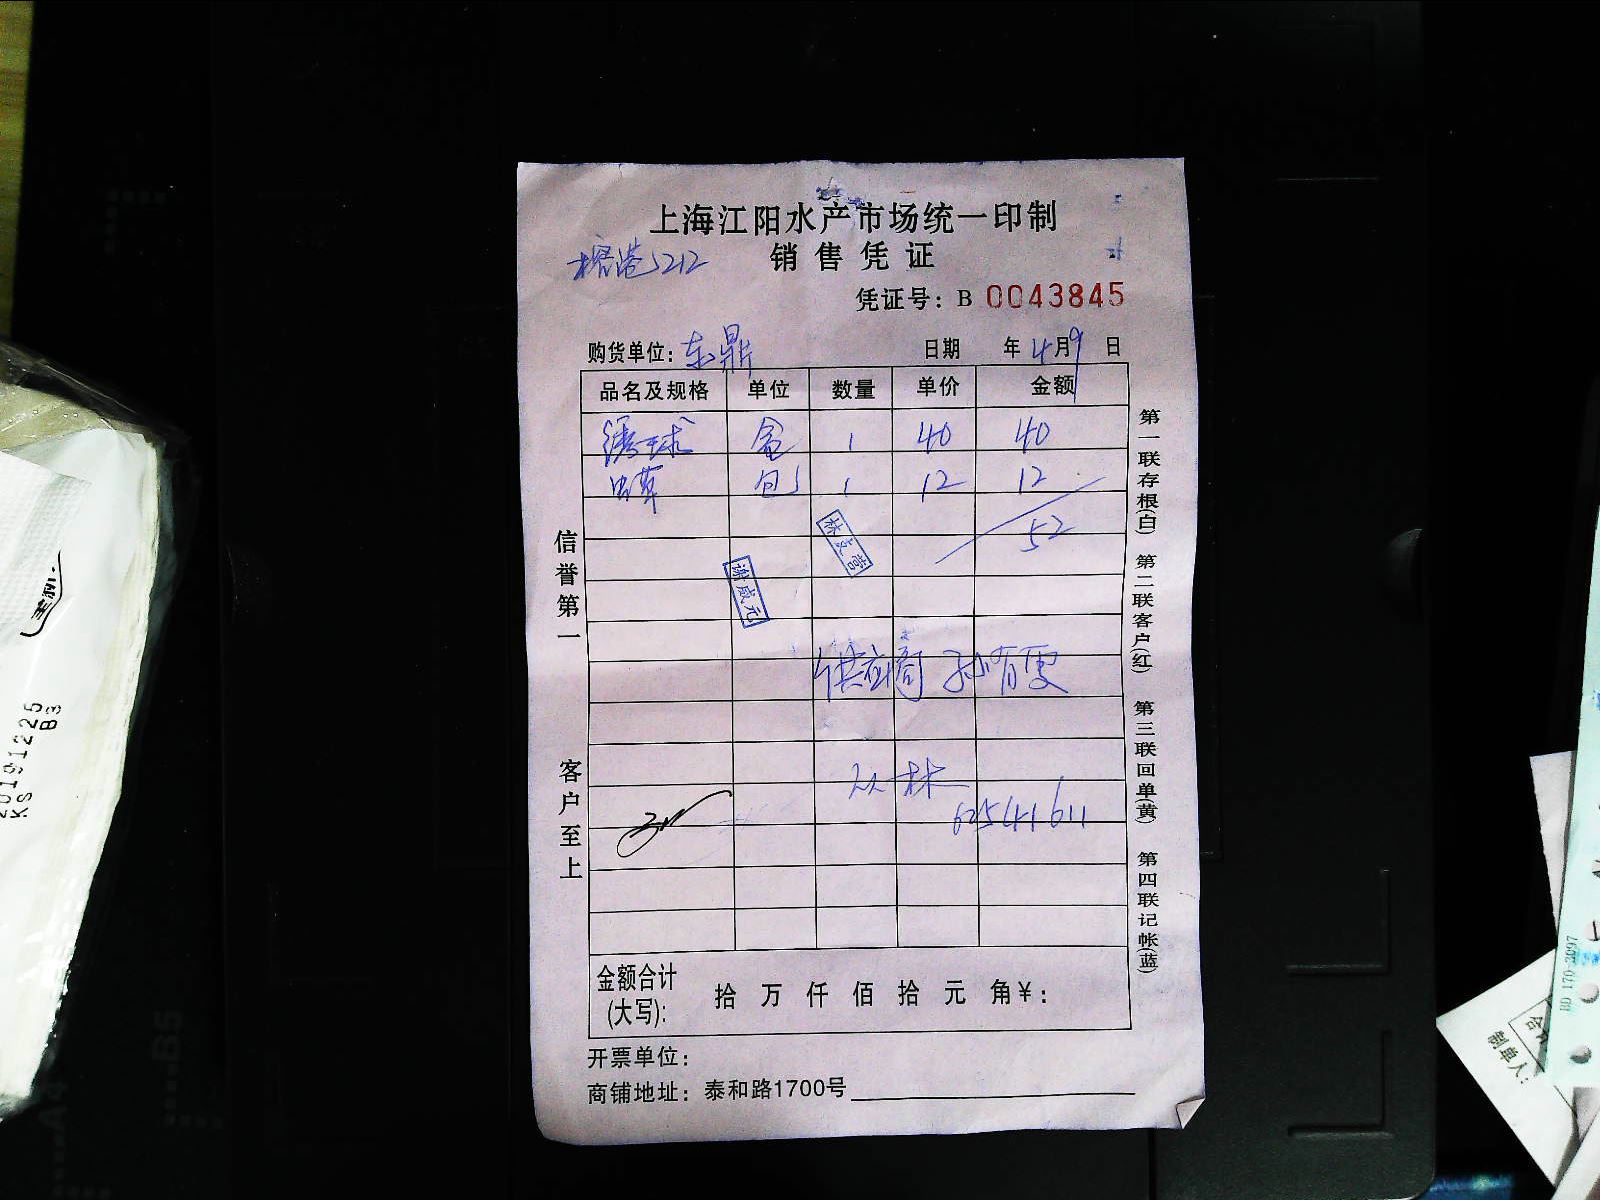 上海江阳水产市场统一印制
销售凭证
榕港5212
凭证号：B 0043845
购货单位：东鼎 日期 年4月9日
品名及规格 单位 数量 单价 金额
绣球 盒 1 40 40
虫草 包 1 12 12
52
林支营
谢威元
供应商 孙育雯
双林
62541611
金额合计
(大写)： 拾 万 仟 佰 拾 元 角￥：
开票单位：
商铺地址：泰和路1700号
信誉第一
客户至上
第一联存根(白) 第二联客户(红) 第三联回单(黄) 第四联记帐(蓝)
20191225
KS B3
BD 170-3097
制单人：